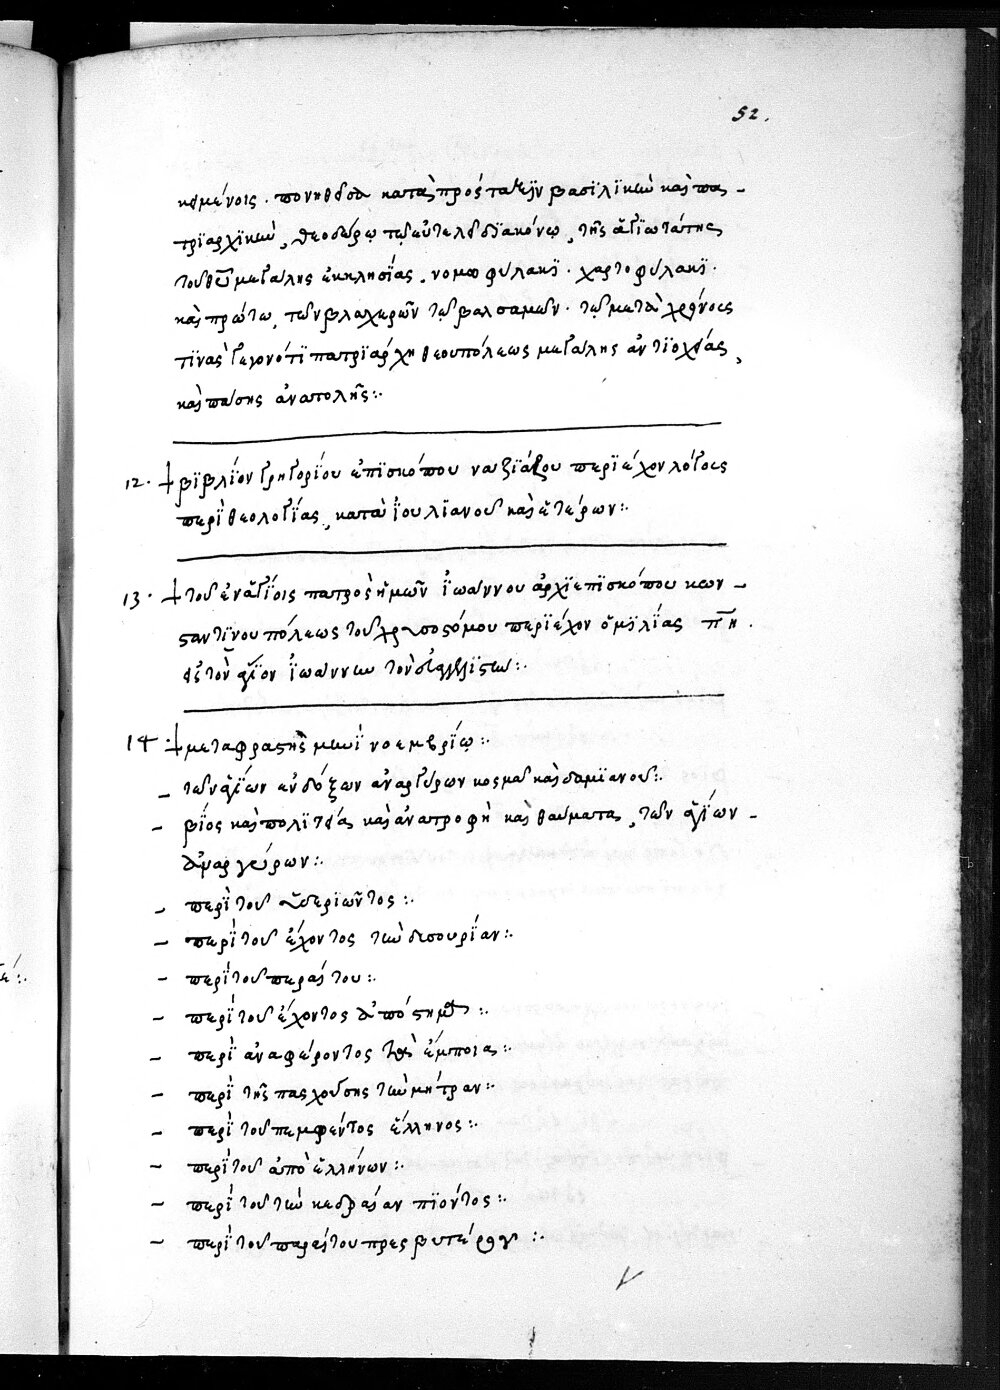 52.
κειμένοις. πονηθεῖσα κατὰ πρόσταξϊν βασϊλϊκὴν καὶ πα-
τρϊαρχϊκὴν, θεοδώρῳ τῷ εὐτελεῖ δϊακόνῳ, τῆς ἁγϊωτάτης
τοῦ θῦ μεγάλης ἐκκλησίας, νομοφύλακϊ. χαρτοφύλακϊ.
καὶ πρώτω, τῶν βλαχερῶν τῷ βαλσαμὼν. τῷ μετὰ χρόνους
τϊνὰς γεγονότϊ πατρϊάρχη θεουπόλεως μεγάλης ἀντϊοχείας,
καὶ πάσης ἀνατολῆς:.
12. + βϊβλίον γρηγορίου ἐπϊσκόπου ναζϊάζου περϊέχον λόγους
περὶ θεολογίας, κατὰ ἰουλϊανοῦ καὶ ἑτέρων:.
13. + τοῦ ἐν ἁγίοις πατρὸς ἡμῶν ἰωάννου ἀρχϊεπϊσκόπου κων-
σαντϊνουπόλεως τοῦ χρυσοστόμου περϊέχον ὁμϊλίας πη.
εἰς τὸν ἅγϊον ἰωάννην τὸν εὐαγγελϊστὴν:.
14. + μεταφραστὴς μηνὶ νοεμβρίῳ:.
- τῶν ἁγίων ἐνδόξων ἀναργύρων κοσμᾶ καὶ δαμϊανοῦ:.
- βίος καὶ πολϊτεία καὶ ἀνατροφὴ καὶ θαύματα, τῶν ἁγίων -
ἀναργύρων:.
- περὶ τοῦ ὑδερϊῶντος:.
- περὶ τοῦ ἔχοντος τὴν δισουρίαν:.
- περὶ τοῦ περάστου:.
- περὶ τοῦ ἔχοντος ἀπόστημα:.
- περὶ ἀναφέροντος τὰ ἔμποια:.
- περὶ τῆς πασχούσης τὴν μήτραν:.
- περὶ τοῦ πεμφέντος ἕλληνος:.
- περὶ τοῦ ἀπὸ ἑλλήνων:.
- περὶ τοῦ τὴν κεδρέαν πϊόντος:.
- περὶ τοῦ παρέτου πρεσβυτέρου:.